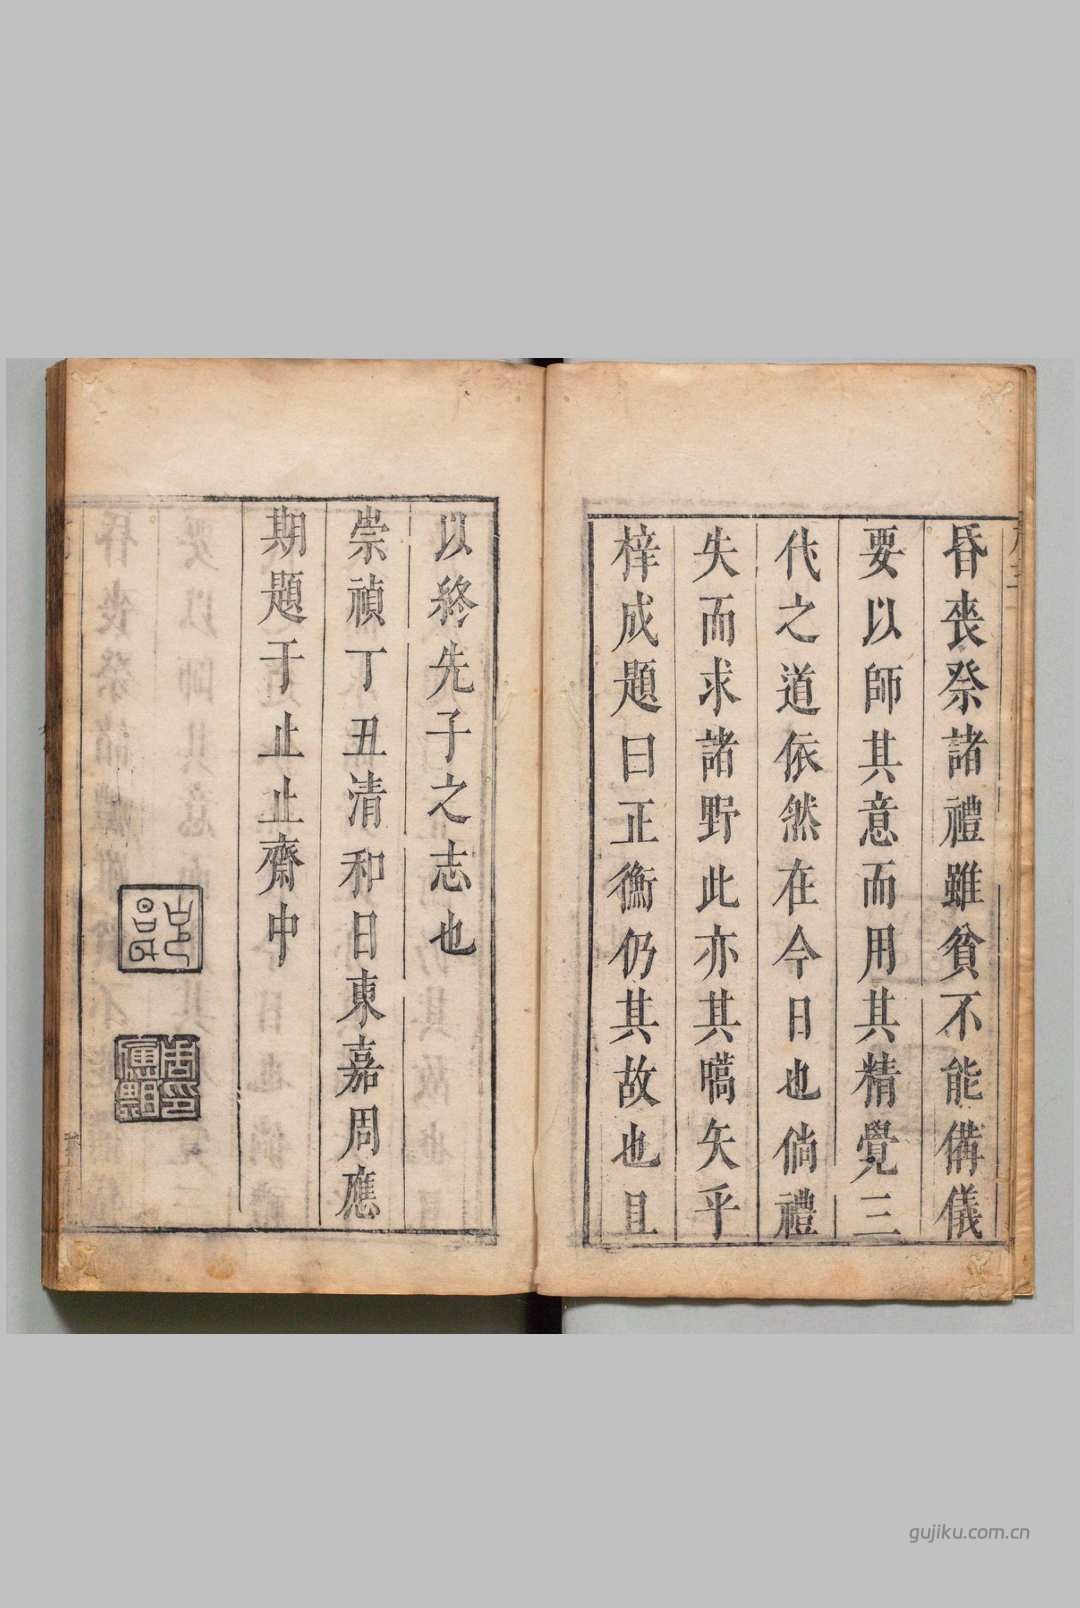 昏喪祭諸禮雖貧不能備儀
要以師其意而用其精覺三
代之道依然在今日也倘禮
失而求諸野此亦其嚆矢乎
梓成題曰正衡仍其故也且
以終先子之志也
崇禎丁丑清和日東嘉周應
期題于止止齋中
周應期印
gujiku.com.cn